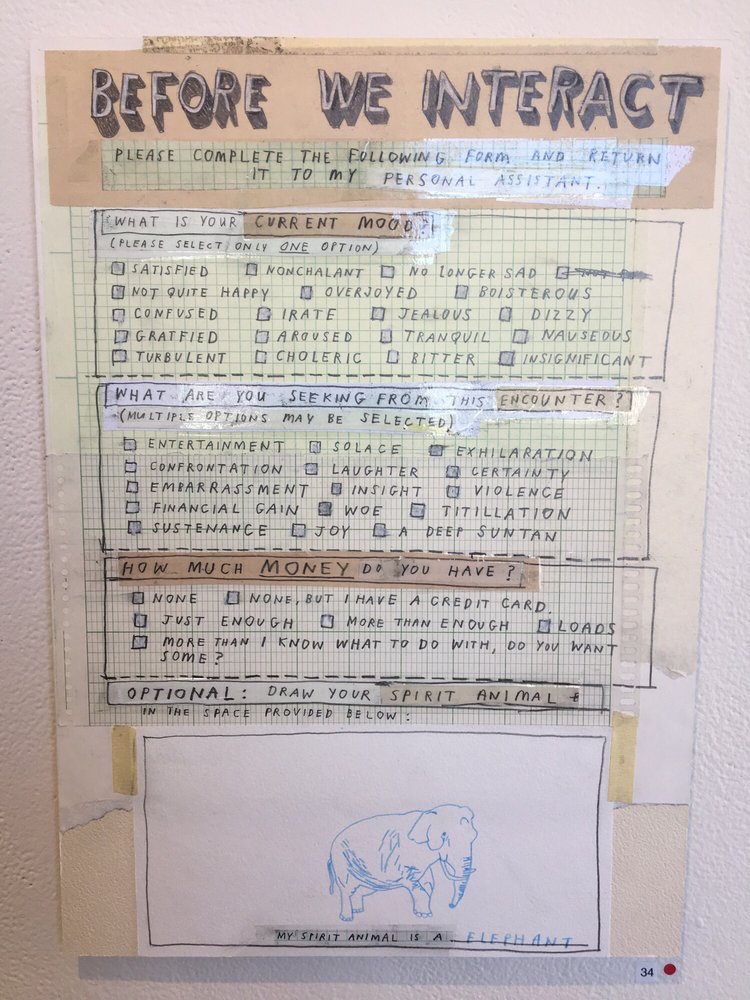 BEFORE WE INTERACT
PLEASE COMPLETE THE FOLLOWING FORM AND RETURN
IT TO MY PERSONAL ASSISTANT.
WHAT IS YOUR CURRENT MOOD?
(PLEASE SELECT ONLY ONE OPTION)
SATISFIED NONCHALANT NO LONGER SAD
NOT QUITE HAPPY OVERJOYED BOISTEROUS
CONFUSED IRATE JEALOUS DIZZY
GRATFIED AROUSED TRANQUIL NAUSEOUS
TURBULENT CHOLERIC BITTER INSIGNIFICANT
WHAT ARE YOU SEEKING FROM THIS ENCOUNTER?
(MULTIPLE OPTIONS MAY BE SELECTED)
ENTERTAINMENT SOLACE EXHILARATION
CONFRONTATION LAUGHTER CERTAINTY
EMBARRASSMENT INSIGHT VIOLENCE
FINANCIAL GAIN WOE TITILLATION
SUSTENANCE JOY A DEEP SUNTAN
HOW MUCH MONEY DO YOU HAVE?
NONE NONE, BUT I HAVE A CREDIT CARD.
JUST ENOUGH MORE THAN ENOUGH LOADS
MORE THAN I KNOW WHAT TO DO WITH, DO YOU WANT
SOME?
OPTIONAL: DRAW YOUR SPIRIT ANIMAL
IN THE SPACE PROVIDED BELOW:
MY SPIRIT ANIMAL IS A ELEPHANT
34